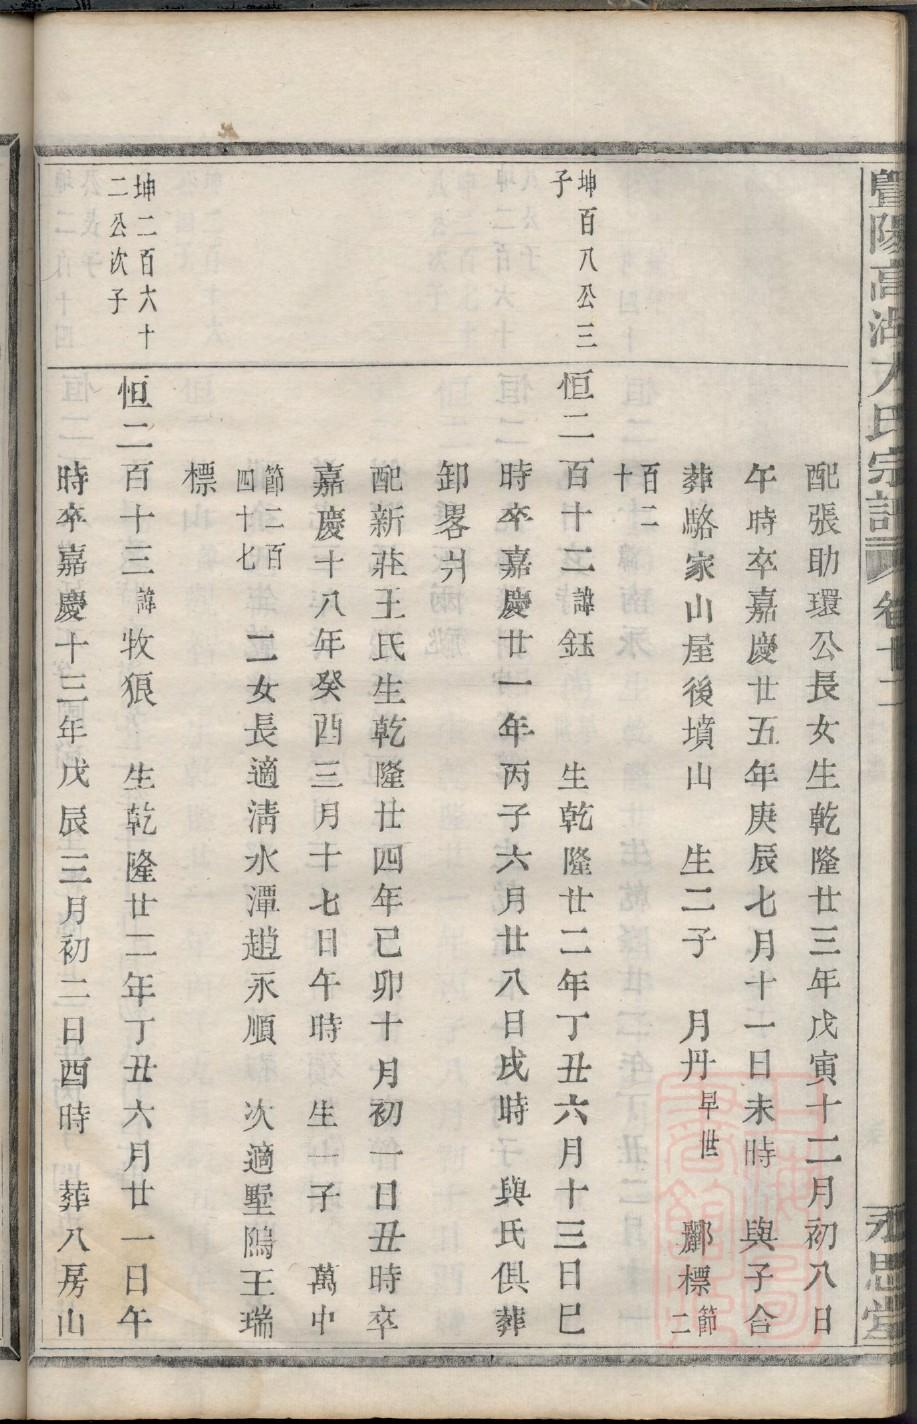 暨陽高湖方氏宗譜 卷十二 永思堂
配張助環公長女生乾隆廿三年戊寅十二月初八日
午時卒嘉慶廿五年庚辰七月十一日未時 與子合
葬駱家山屋後墳山 生二子 月丹早世 酈標節二
百二十
坤百八公三子
恒二百十二諱鈺 生乾隆廿二年丁丑六月十三日巳
時卒嘉慶廿一年丙子六月廿八日戌時 與氏俱葬
卸畧爿
配新莊王氏生乾隆廿四年己卯十月初一日丑時卒
嘉慶十八年癸酉三月十七日午時 生一子 萬中
節二百四十七 二女長適清水潭趙永順 次適墅隝王瑞
標
坤二百六十二公次子
恒二百十三諱牧狼 生乾隆廿二年丁丑六月廿一日午
時卒嘉慶十三年戊辰三月初二日酉時 葬八房山